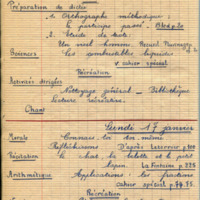 Préparation de dictée
1. Orthographe méthodique
le participe passé. Bled p.20
2. Etude de texte.
Un neuf homme. Recueil
Sciences Les combustibles liquides
v. cahier spécial
Récréation
Activités dirigées
Nettoyage général - Bibliothèque
Lecture récréative.
Chant
Lundi 17 janvier
Morale Connais toi toi-même
Réfléchissons D'après Leterrier p.100
Récitation Le chat, la belette et le petit
lapin. La Fontaine p.225
Arithmétique Applications : les fractions
cahier spécial p.74.75.
Récréation